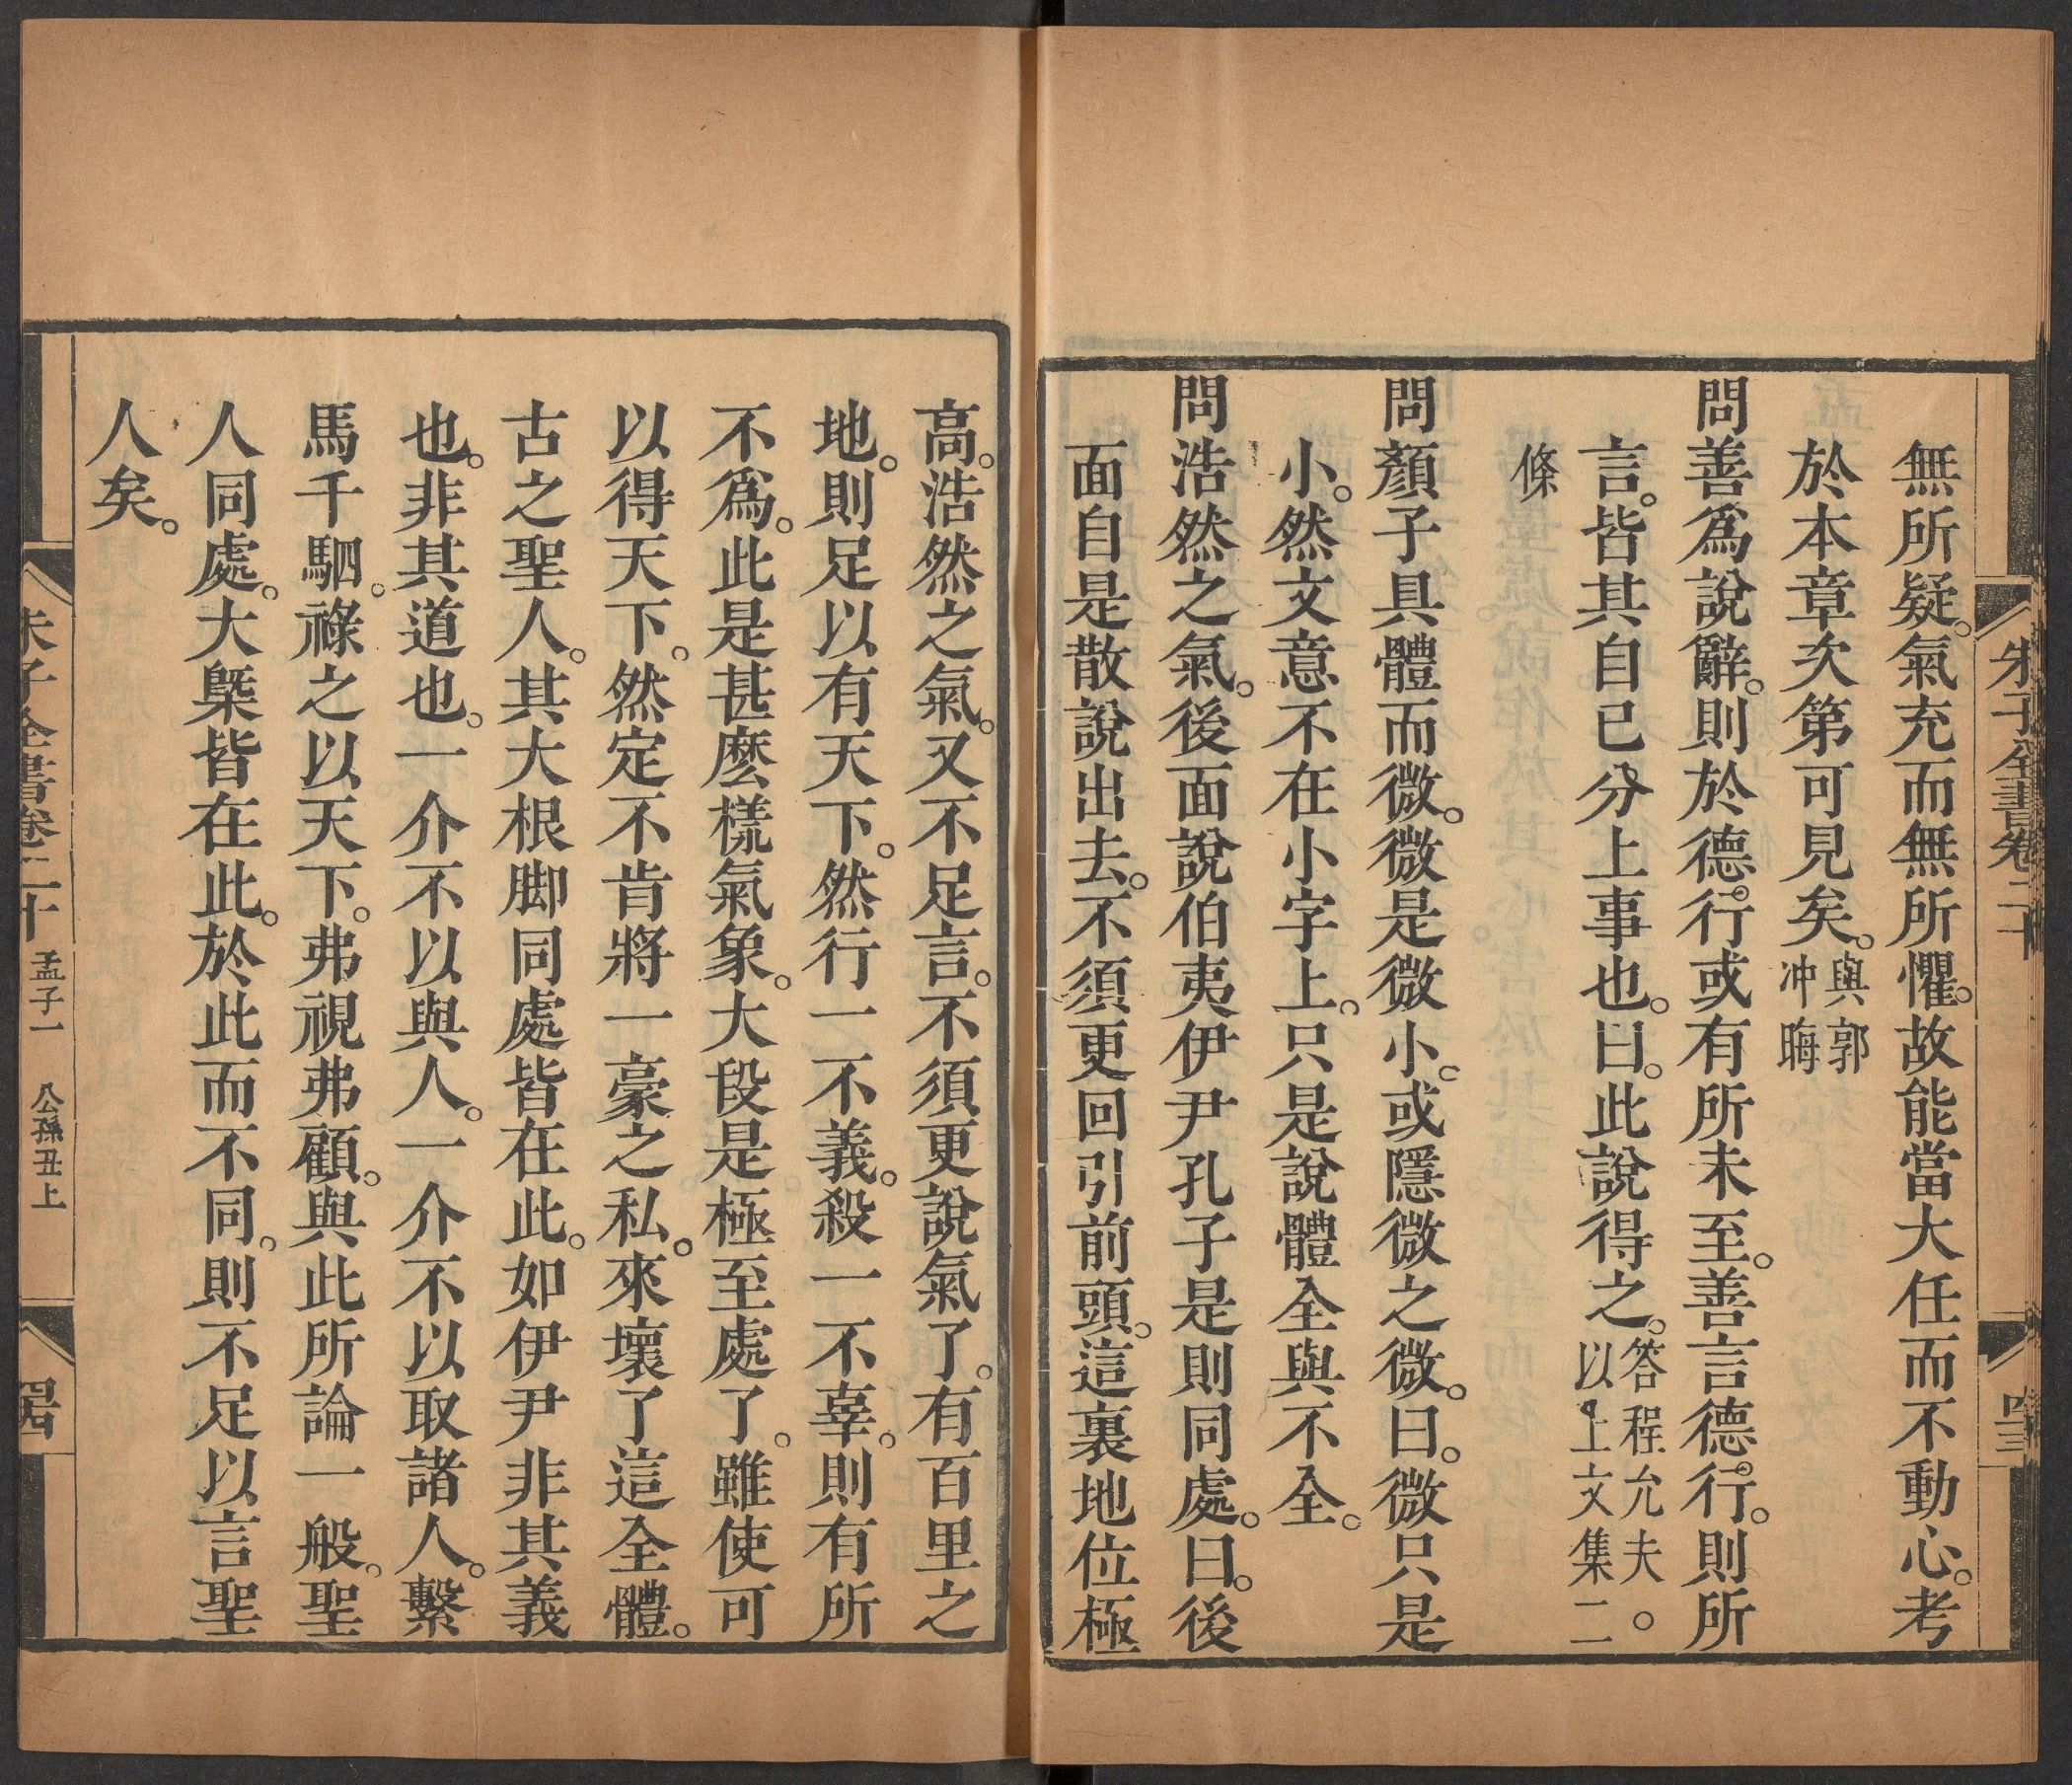 朱子全書卷二十
四三
無所疑。氣充而無所懼。故能當大任而不動心。考
於本章次第可見矣。與郭
冲晦
問善爲說辭。則於德行或有所未至。善言德行。則所
言。皆其自己分上事也。曰。此說得之。答程允夫。
以上文集二
條
問顏子具體而微。微是微小。或隱微之微。曰。微只是
小。然文意不在小字上。只是說體全與不全。
問浩然之氣。後面說伯夷伊尹孔子是則同處。曰。後
面自是散說出去。不須更回引前頭。這裏地位極
高。浩然之氣。又不足言。不須更說氣了。有百里之
地。則足以有天下。然行一不義。殺一不辜。則有所
不爲。此是甚麽樣氣象。大段是極至處了。雖使可
以得天下。然定不肯將一豪之私。來壞了這全體。
古之聖人。其大根脚同處皆在此。如伊尹非其義
也。非其道也。一介不以與人。一介不以取諸人。繫
馬千駟。祿之以天下。弗視弗顧。與此所論一般。聖
人同處。大槩皆在此。於此而不同。則不足以言聖
人矣。
朱子全書卷二十 孟子一 公孫丑上
四四